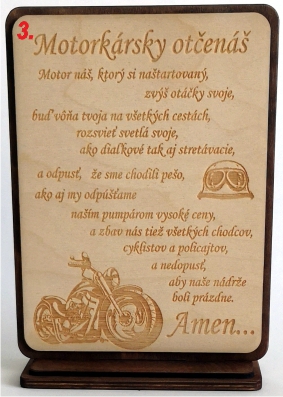 3.
Motorkársky otčenáš
Motor náš, ktorý si naštartovaný,
zvýš otáčky svoje,
buď vôňa tvoja na všetkých cestách,
rozsvieť svetlá svoje,
ako diaľkové tak aj stretávacie,
a odpusť, že sme chodili pešo,
ako aj my odpúšťame
našim pumpárom vysoké ceny,
a zbav nás tiež všetkých chodcov,
cyklistov a policajtov,
a nedopusť,
aby naše nádrže
boli prázdne.
Amen...